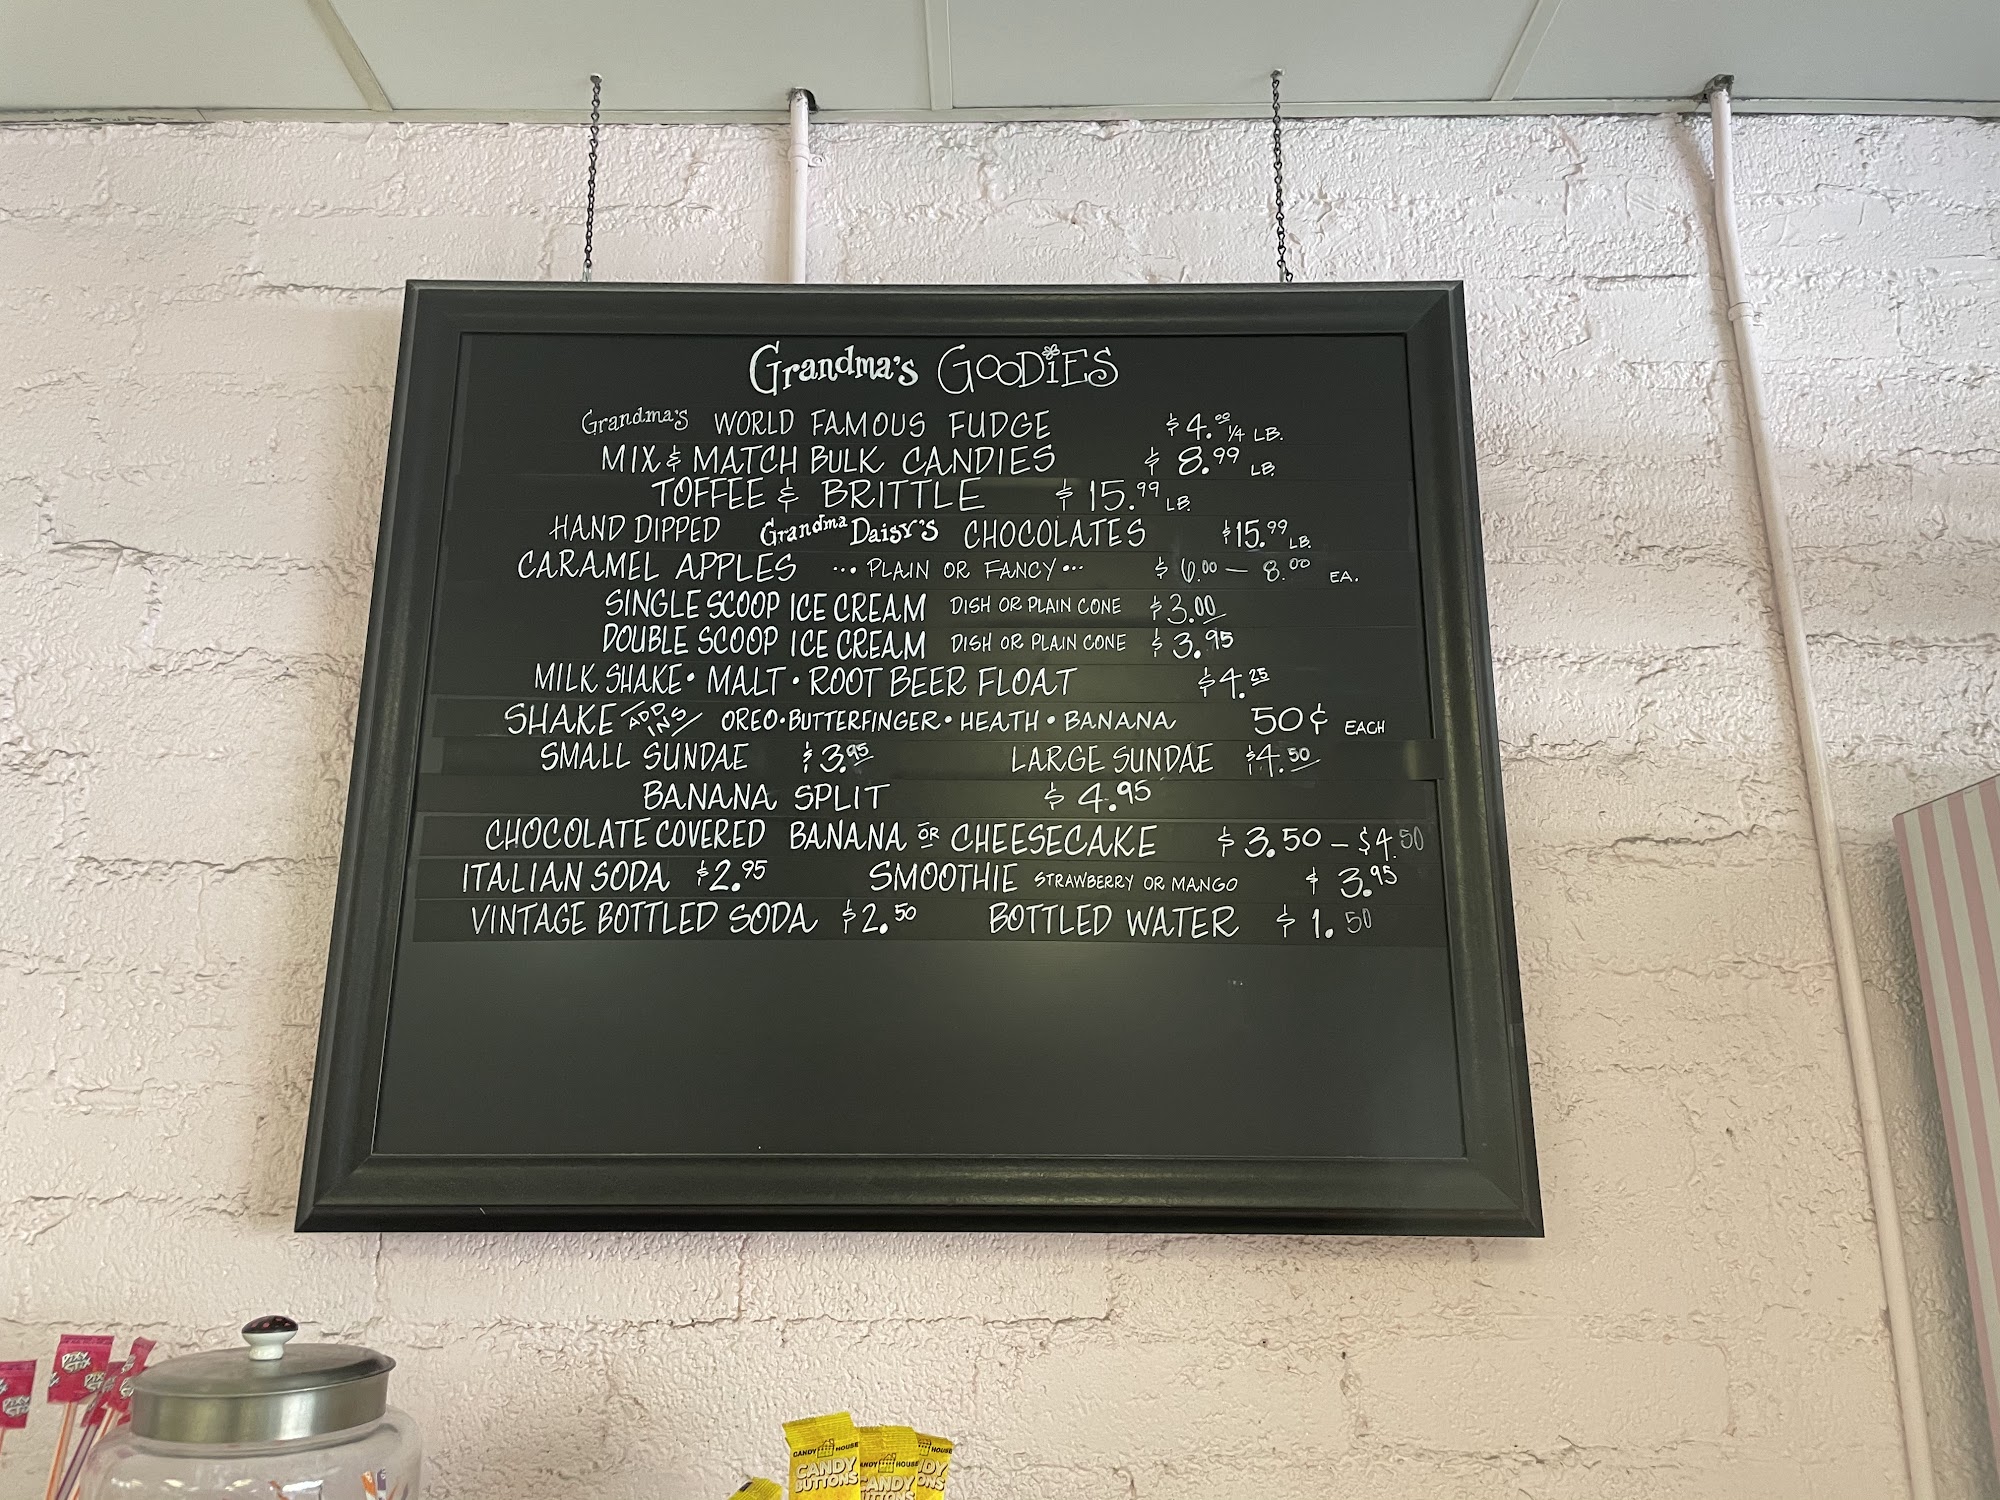 Grandma's GOODiES
Grandma's WORLD FAMOUS FUDGE $4.00 1/4 LB.
MIX & MATCH BULK CANDIES $8.99 LB.
TOFFEE & BRITTLE $15.99 LB.
HAND DIPPED Grandma DAisy's CHOCOLATES $15.99 LB.
CARAMEL APPLES ... PLAIN OR FANCY ... $6.00 — 8.00 EA.
SINGLE SCOOP ICE CREAM DISH OR PLAIN CONE $3.00
DOUBLE SCOOP ICE CREAM DISH OR PLAIN CONE $3.95
MILK SHAKE • MALT • ROOT BEER FLOAT $4.25
SHAKE ADD INS OREO • BUTTERFINGER • HEATH • BANANA 50¢ EACH
SMALL SUNDAE $3.95 LARGE SUNDAE $4.50
BANANA SPLIT $4.95
CHOCOLATE COVERED BANANA OR CHEESECAKE $3.50 – $4.50
ITALIAN SODA $2.95 SMOOTHIE STRAWBERRY OR MANGO $3.95
VINTAGE BOTTLED SODA $2.50 BOTTLED WATER $1.50
PIXY STIX
CANDY HOUSE
CANDY BUTTONS